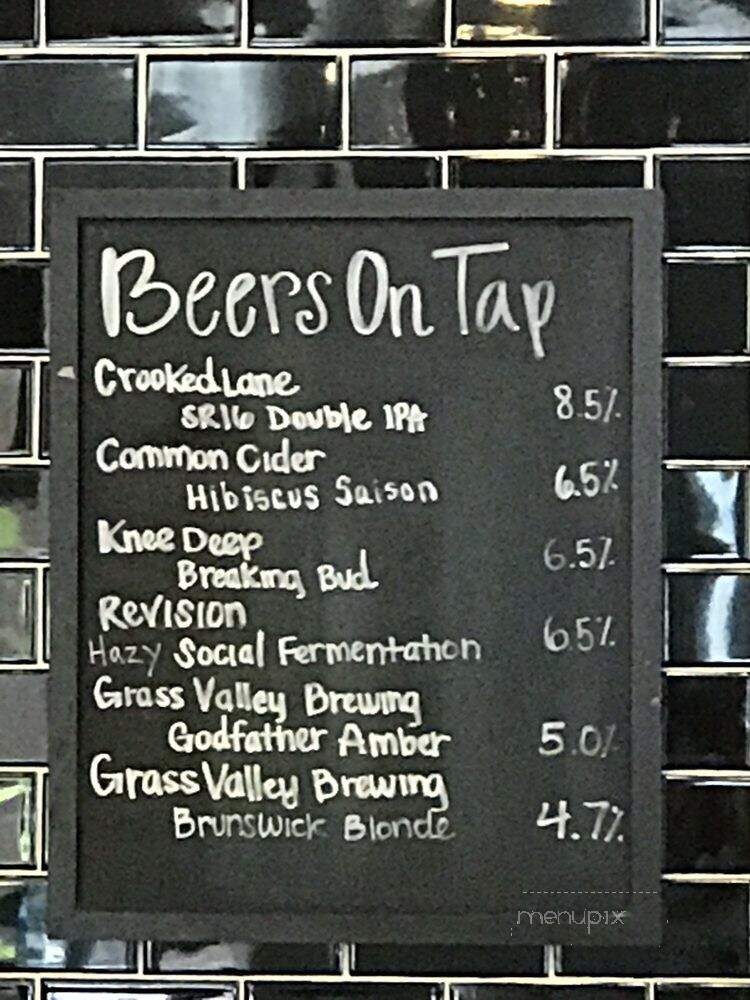 Beers On Tap
Crooked Lane
SR16 Double IPA 8.5%
Common Cider
Hibiscus Saison 6.5%
Knee Deep
Breaking Bud 6.5%
Revision
Hazy Social Fermentation 6.5%
Grass Valley Brewing
Godfather Amber 5.0%
Grass Valley Brewing
Brunswick Blonde 4.7%
menupix